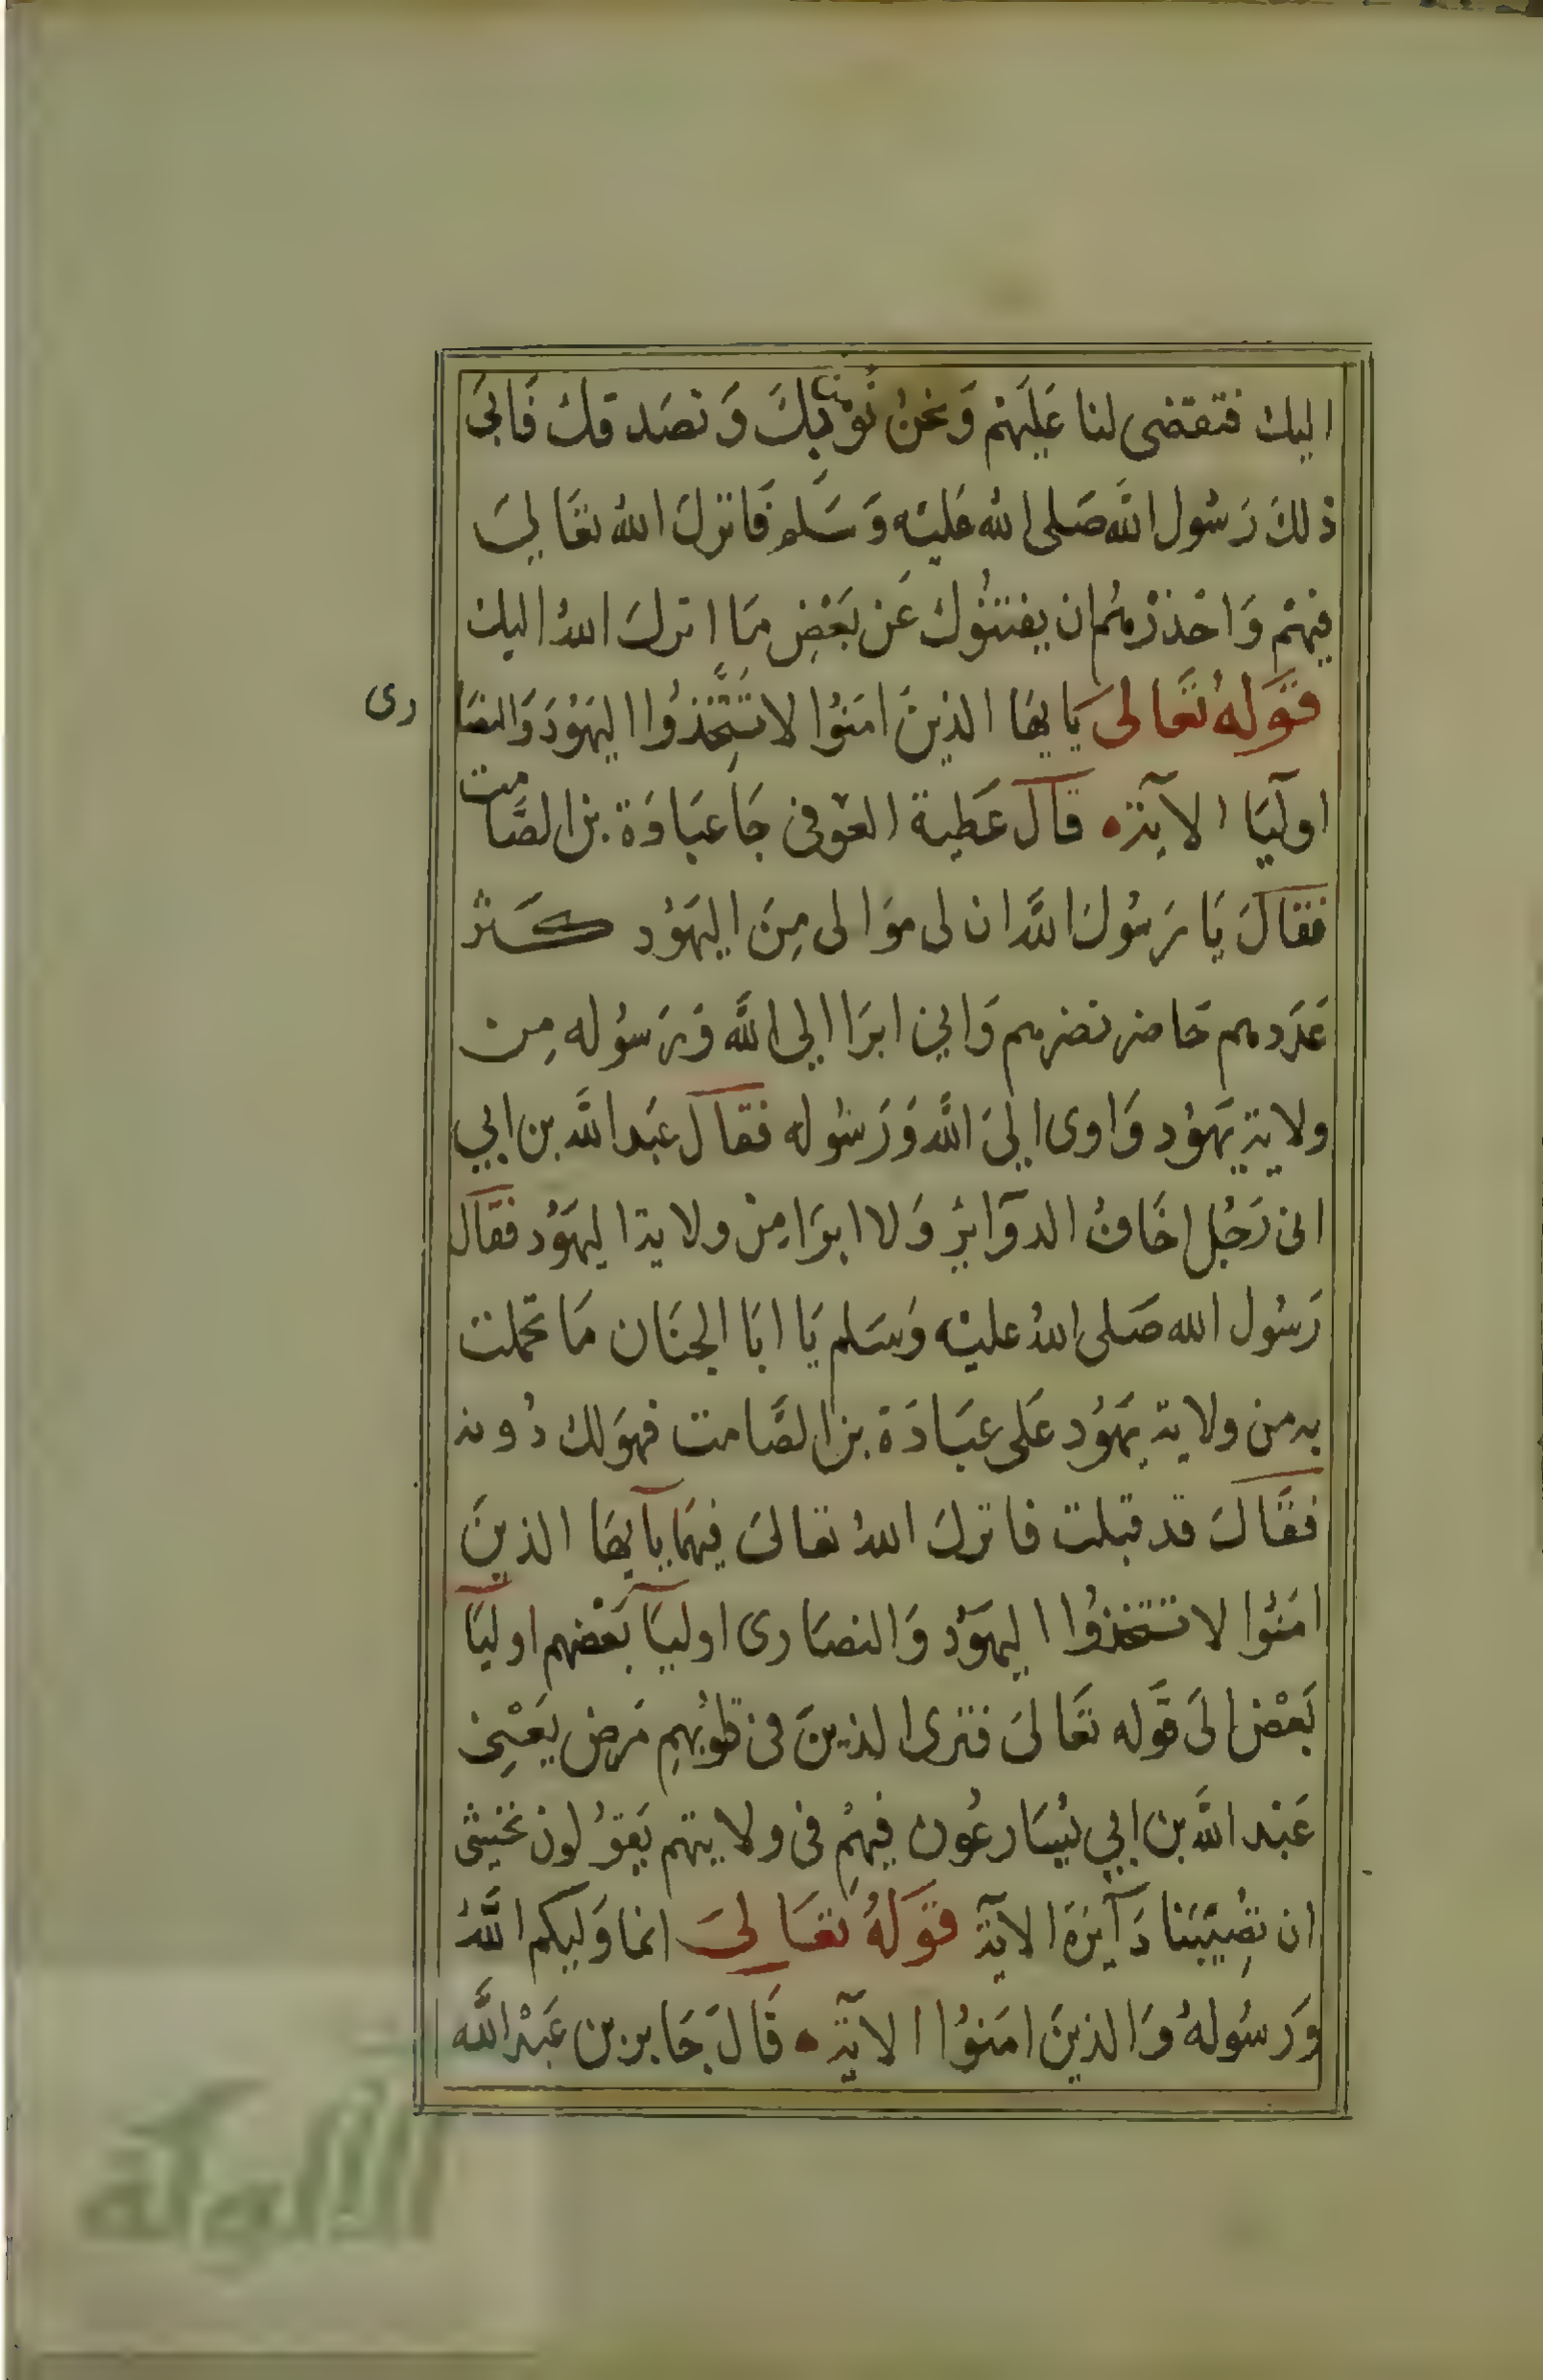 اليك فتقضى لنا عَلَيهِمْ وَنحنُ نُؤمن بِكَ وَنصَدقك فَابىَ
ذلكَ رَسُول اللَّه صَلى الله عَليْه وَسَلم فَانزلَ اللهُ تعَالىَ
فيهمْ وَاحْذرْهُم ان يفتنُوك عَن بَعْضِ مَا انزلَ اللهُ اليك
قَولهُ تعَالى يَايهَا الذينَ امَنُوا لا تَتَّخِذُوا اليهَوُدَ وَالنصَا
رى
اوليَا الآية ه قالَ عَطية العَوفى جَا عبَادَة بن الصَّامت
فقالَ يَا رَسُولَ اللَّه ان لى موَالى مِنَ اليهَوُد كَثر
عَدَدهم حَاضر نصرهم وَاني ابرَا الي اللَّه وَرَسُوله مِن
ولاية يَهَوُد وَاوى اليَ اللَّه وَرَسُوله فقالَ عَبد اللَّه بن ابي
انى رَجُل اخَافُ الدوَآيرِ وَلا ابرَا مِنْ ولاية اليهَوُد فقال
رَسُول الله صَلى اللهُ عليْه وَسَلم يَا ابَا الحبَاب مَا تحملت
به من ولاية يهَوُد عَلى عبَادَة بن الصَّامت فهوَ لك دُونه
فقَالَ قد قبلت فانزلَ اللهُ تعالىَ فيهمَا يآيهَا الذينَ
امَنُوا لا تتخذوُا اليهَوُد وَالنصَارى اوليَآ بَعْضهم اوليَآ
بَعْض الىَ قَوله تعَالىَ فترى الذينَ فى قلوُبهِم مَرض يَعْنِى
عَبْد اللَّه بن ابي يُسَارعُون فيهِمْ فى ولايتهم يَقوُلون نخشى
ان تصُيبَنا دَآيرَة الآية قَولهُ تعَالىَ انما وَليكم اللَّهُ
وَرسُولهُ وَالذينَ امَنوُا الآية ه قَالَ جَابر بن عَبْد اللَّه
الألوكة